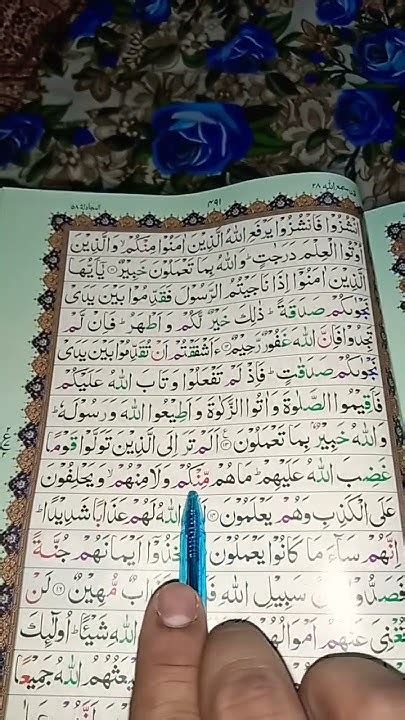 قد سمع الله ٢٨
٤٩١
المجادلة ٥٨
انْشُزُوْا فَانْشُزُوْا يَرْفَعِ اللّٰهُ الَّذِيْنَ اٰمَنُوْا مِنْكُمْ ۙ وَالَّذِيْنَ
اُوْتُوا الْعِلْمَ دَرَجٰتٍ ؕ وَاللّٰهُ بِمَا تَعْمَلُوْنَ خَبِيْرٌ ۝۱۱ يٰۤاَيُّهَا
الَّذِيْنَ اٰمَنُوْۤا اِذَا نَاجَيْتُمُ الرَّسُوْلَ فَقَدِّمُوْا بَيْنَ يَدَيْ
نَجْوٰىكُمْ صَدَقَةً ؕ ذٰلِكَ خَيْرٌ لَّكُمْ وَاَطْهَرُ ؕ فَاِنْ لَّمْ
تَجِدُوْا فَاِنَّ اللّٰهَ غَفُوْرٌ رَّحِيْمٌ ۝۱۲ ءَاَشْفَقْتُمْ اَنْ تُقَدِّمُوْا بَيْنَ يَدَيْ
نَجْوٰىكُمْ صَدَقٰتٍ ؕ فَاِذْ لَمْ تَفْعَلُوْا وَتَابَ اللّٰهُ عَلَيْكُمْ
فَاَقِيْمُوا الصَّلٰوةَ وَاٰتُوا الزَّكٰوةَ وَاَطِيْعُوا اللّٰهَ وَرَسُوْلَهٗ ؕ
وَاللّٰهُ خَبِيْرٌۢ بِمَا تَعْمَلُوْنَ ۝۱۳ اَلَمْ تَرَ اِلَى الَّذِيْنَ تَوَلَّوْا قَوْمًا
غَضِبَ اللّٰهُ عَلَيْهِمْ ؕ مَا هُمْ مِّنْكُمْ وَلَا مِنْهُمْ ۙ وَيَحْلِفُوْنَ
عَلَى الْكَذِبِ وَهُمْ يَعْلَمُوْنَ ۝۱۴ اللّٰهُ لَهُمْ عَذَابًا شَدِيْدًا ؕ
اِنَّهُمْ سَآءَ مَا كَانُوْا يَعْمَلُوْنَ اَيْمَانَهُمْ جُنَّةً
فَصَدُّوْا سَبِيْلِ اللّٰهِ مُّهِيْنٌ ۝۱۶ لَنْ
تُغْنِيَ عَنْهُمْ اَمْوَالُهُمْ اللّٰهِ شَيْـًٔا ؕ اُولٰٓئِكَ
اللّٰهُ جَمِيْعًا